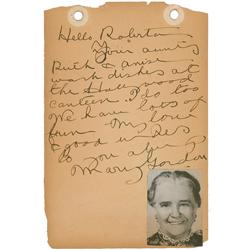 Hello Roberta
Your aunts
Ruth & Anise
wash dishes at
the Hollywood
canteen I do too
We have lots of
fun My love
& good wishes
to you always
Mary Gordon